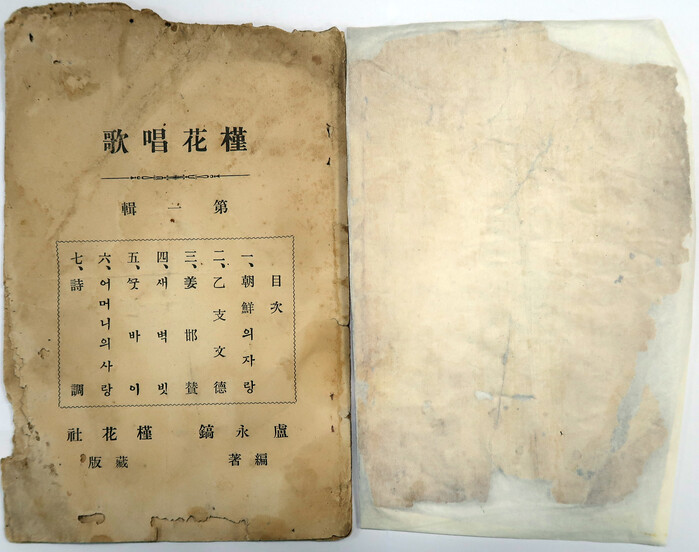 槿花唱歌
第一輯
目次
一、朝鮮의자랑
二、乙支文德
三、姜邯賛
四、새벽빗
五、ᄭᅩᆺ바이
六、어머니의사랑
七、詩調
盧永鎬 槿花社
編著 藏版